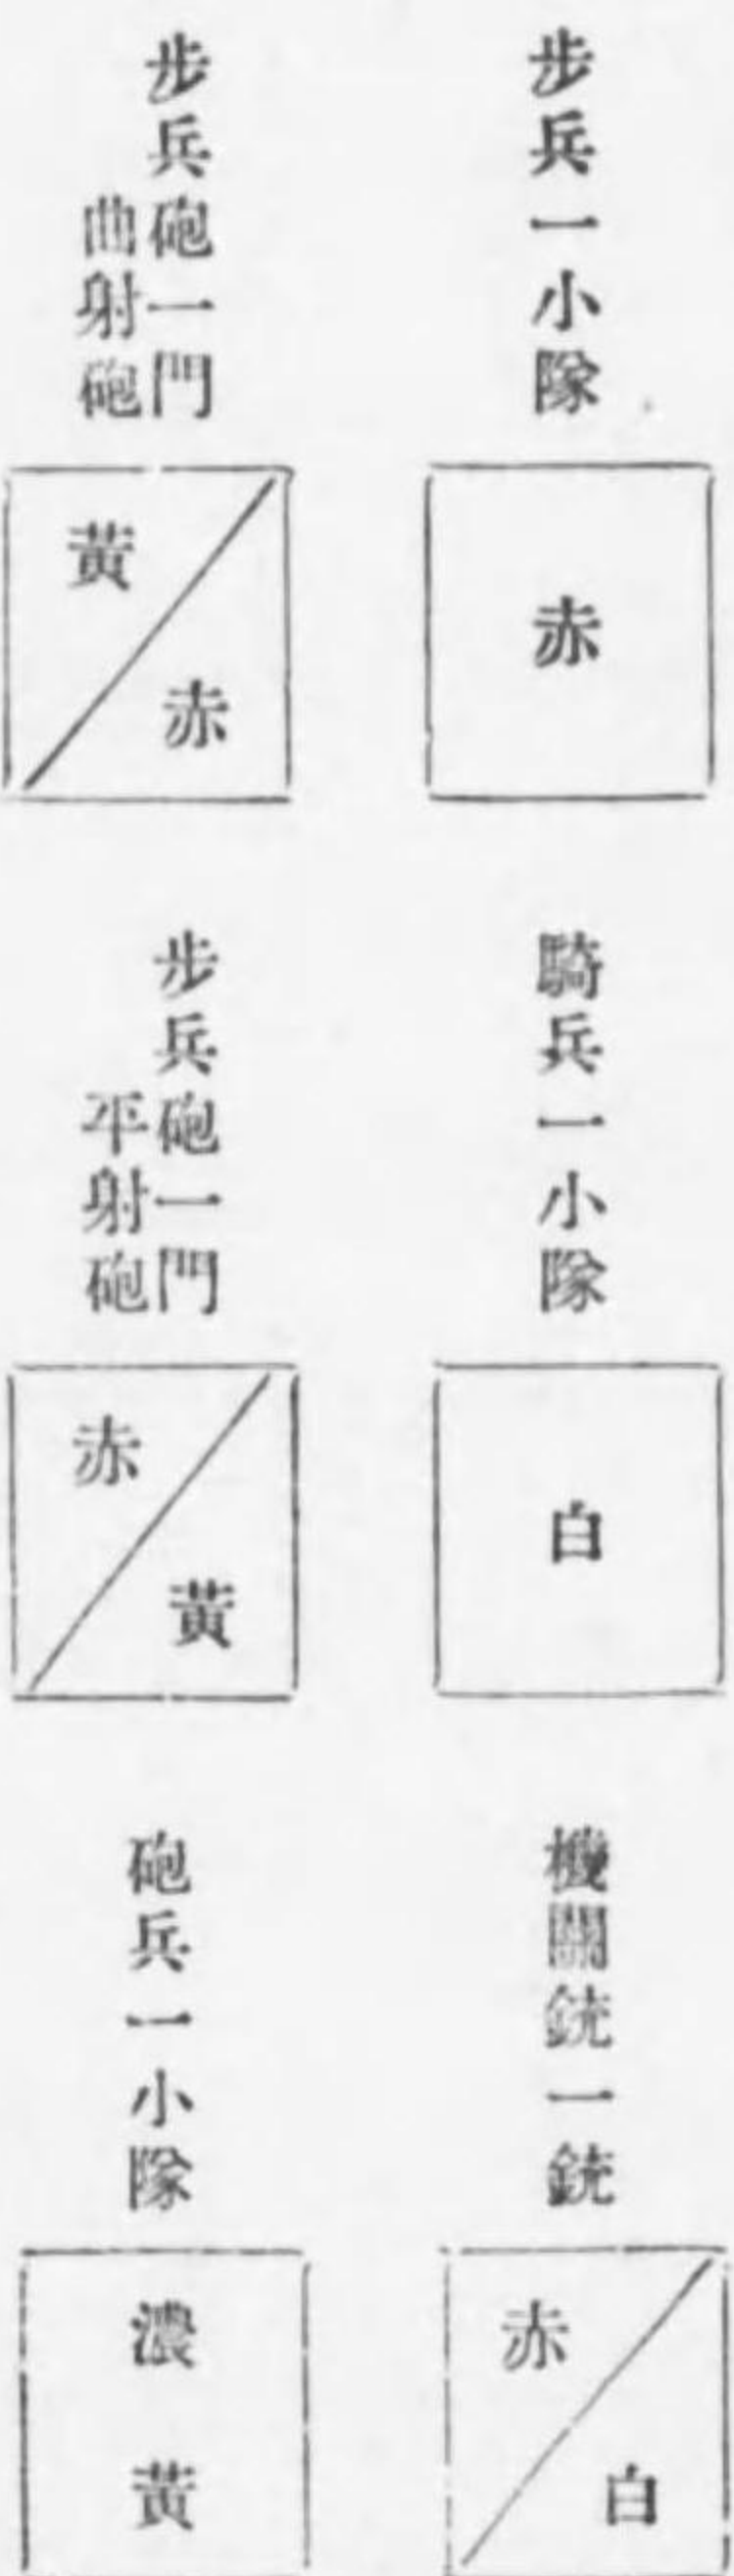 步兵一小隊
赤
騎兵一小隊
白
機關銃一銃
赤
白
步兵砲一門
曲射砲
黃
赤
步兵砲一門
平射砲
赤
黃
砲兵一小隊
濃黃